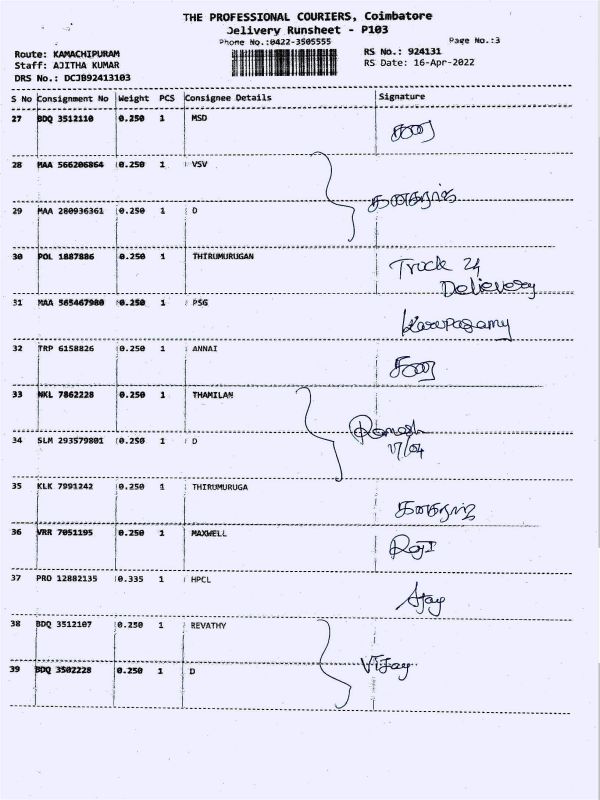 THE PROFESSIONAL COURIERS, Coimbatore
Delivery Runsheet - P103
Phone No.:0422-3505555 Page No.:3
Route: KAMACHIPURAM RS No.: 924131
Staff: AJITHA KUMAR RS Date: 16-Apr-2022
DRS No.: DCJB92413103
S No Consignment No Weight PCS Consignee Details Signature
27 BDQ 3512110 0.250 1 MSD
28 MAA 566206864 0.250 1 VSV
29 MAA 280936361 0.250 1 D
30 POL 1887886 0.250 1 THIRUMURUGAN Truck 24
Delievery
31 MAA 565467980 0.250 1 PSG
Karupasamy
32 TRP 6158826 0.250 1 ANNAI
33 NKL 7862228 0.250 1 THAMILAN
Ramesh
34 SLM 293579801 0.250 1 D 17/04
35 KLK 7991242 0.250 1 THIRUMURUGA
36 VRR 7051195 0.250 1 MAXWELL
Raji
37 PRO 12882135 0.335 1 HPCL
Ajay
38 BDQ 3512107 0.250 1 REVATHY
Vijay
39 BDQ 3502228 0.250 1 D